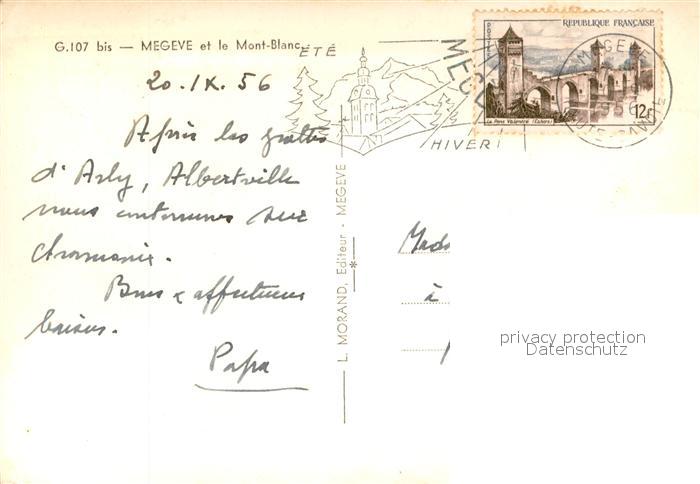 G.107 bis — MEGEVE et le Mont-Blanc
20.IX.56
Après les grottes
d'Arly, Albertville
nous continuons sur
Bons & affectueux
baisers.
Papa
L. MORAND, Editeur - MEGEVE
ÉTÉ
MEGEVE
HIVER
REPUBLIQUE FRANÇAISE
Le Pont Valentré (Cahors)
12f
MEGEVE
HTE-SAVOIE
Mad
à
privacy protection
Datenschutz